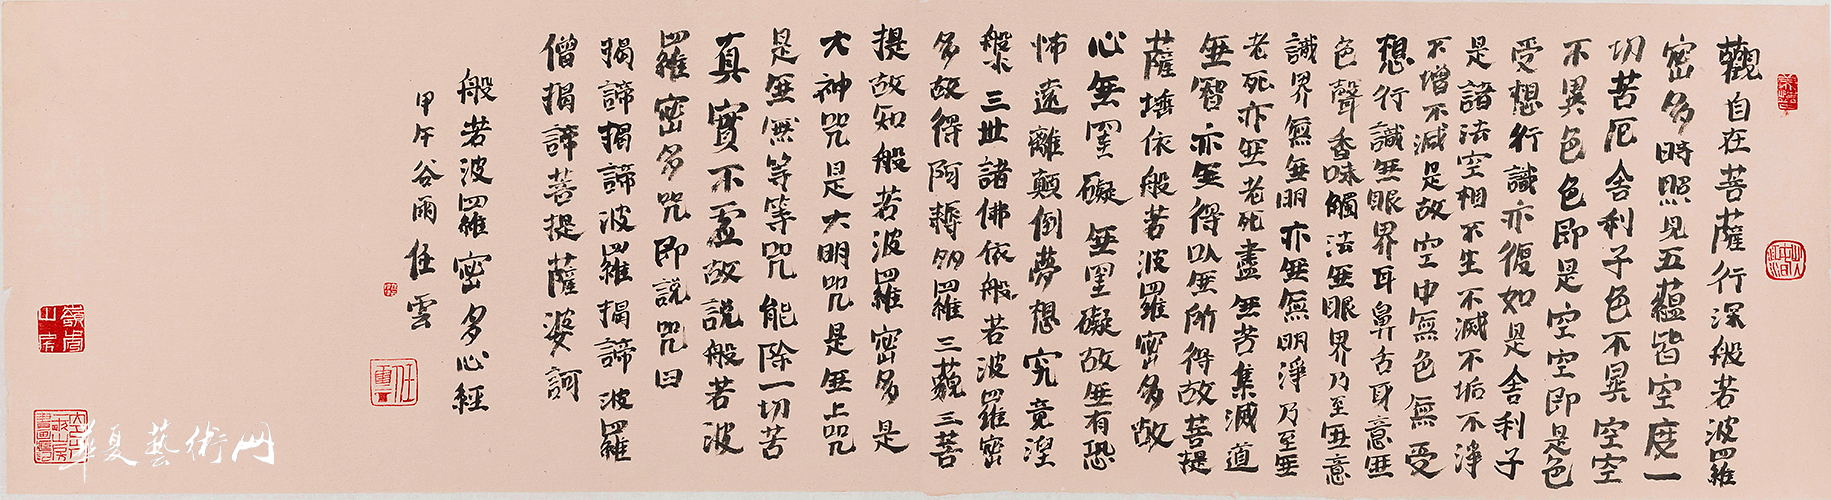 觀自在菩薩行深般若波羅
密多時照見五蘊皆空度一
切苦厄舍利子色不異空空
不異色色即是空空即是色
受想行識亦復如是舍利子
是諸法空相不生不滅不垢不淨
不增不減是故空中無色無受
想行識無眼界耳鼻舌身意無
色聲香味觸法無眼界乃至無意
識界無無明亦無無明淨乃至無
老死亦無老死盡無苦集滅道
無智亦無得以無所得故菩提
薩埵依般若波羅密多故
心無罣礙無罣礙故無有恐
怖遠離顛倒夢想究竟涅
槃三世諸佛依般若波羅密
多故得阿耨多羅三藐三菩
提故知般若波羅密多是
大神咒是大明咒是無上咒
是無等等咒能除一切苦
真實不虛故說般若波
羅密多咒即說咒曰
揭諦揭諦波羅揭諦波羅
僧揭諦菩提薩婆訶
般若波羅密多心經
甲午谷雨任雲
任雲
山房
華夏藝術网